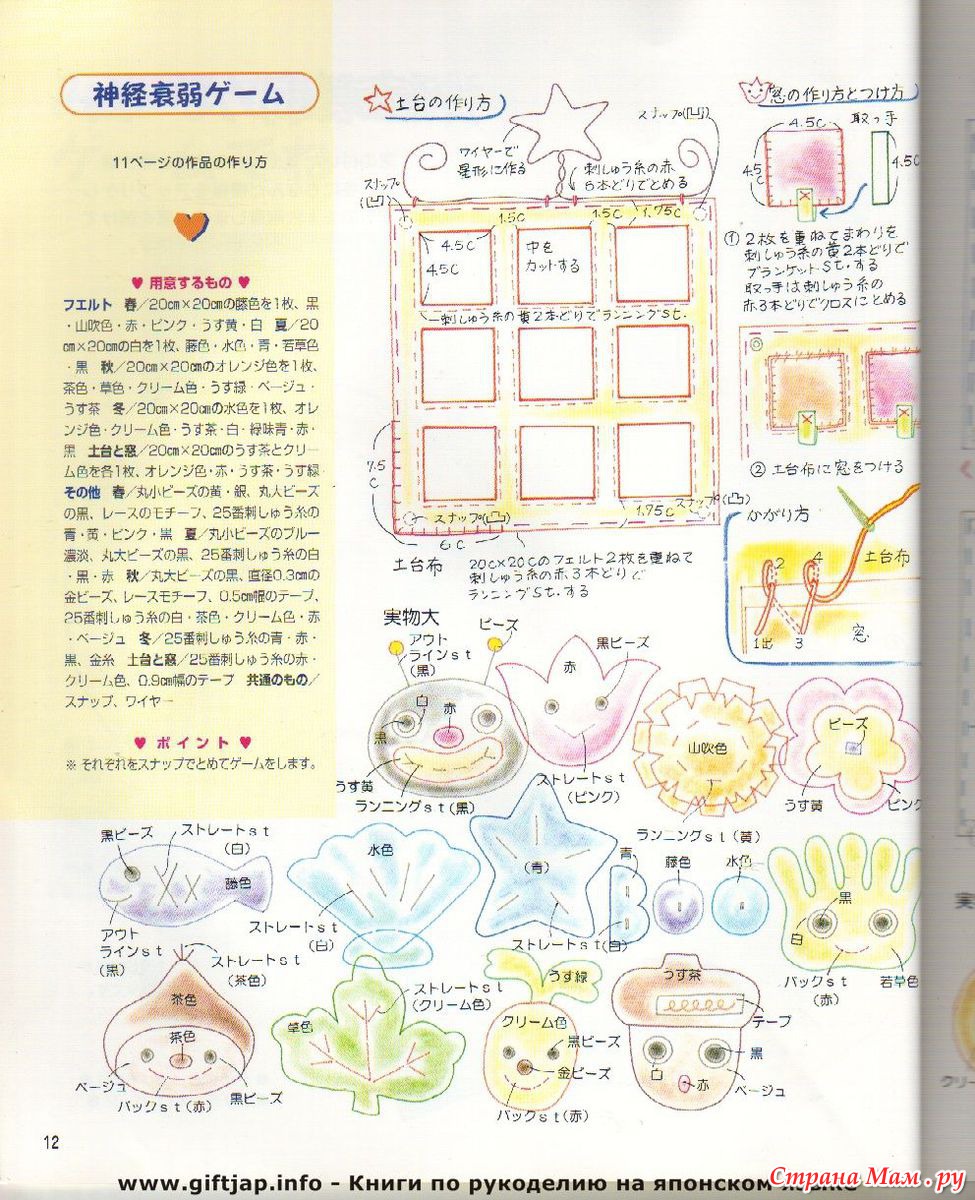 神経衰弱ゲーム
11ページの作品の作り方
♥ 用意するもの ♥
フエルト 春／20㎝×20㎝の藤色を1枚、黒
・山吹色・赤・ピンク・うす黄・白 夏／20
㎝×20㎝の白を1枚、藤色・水色・青・若草色
・黒 秋／20㎝×20㎝のオレンジ色を1枚、
茶色・草色・クリーム色・うす緑・ベージュ・
うす茶 冬／20㎝×20㎝の水色を1枚、オレ
ンジ色・クリーム色・うす茶・白・緑味青・赤・
黒 土台と窓／20㎝×20㎝のうす茶とクリー
ム色を各1枚、オレンジ色・赤・うす茶・うす緑
その他 春／丸小ビーズの黄・銀、丸大ビーズ
の黒、レースのモチーフ、25番刺しゅう糸の
青・黄・ピンク・黒 夏／丸小ビーズのブルー
濃淡、丸大ビーズの黒、25番刺しゅう糸の白
・黒・赤 秋／丸大ビーズの黒、直径0.3㎝の
金ビーズ、レースモチーフ、0.5㎝幅のテープ、
25番刺しゅう糸の白・茶色・クリーム色・赤
・ベージュ 冬／25番刺しゅう糸の青・赤・
黒、金糸 土台と窓／25番刺しゅう糸の赤・
クリーム色、0.9㎝幅のテープ 共通のもの／
スナップ、ワイヤー
♥ ポイント ♥
※ それぞれをスナップでとめてゲームをします。
土台の作り方
スナップ(凹)
ワイヤーで
星形に作る
刺しゅう糸の赤
6本どりでとめる
スナップ
(凹)
1.5C
1.5C
1.75C
4.5C
4.5C
中を
カットする
刺しゅう糸の黄2本どりでランニングSt.
7.5
C
スナップ(凸)
6C
スナップ(凸)
1.75C
土台布
20C×20Cのフェルト2枚を重ねて
刺しゅう糸の赤3本どりで
ランニングSt.する
窓の作り方とつけ方
4.5C
取っ手
4.5
C
4.5C
① 2枚を重ねてまわりを
刺しゅう糸の黄2本どりで
ブランケットSt.する
取っ手は刺しゅう糸の
赤3本どりでクロスにとめる
② 土台布に窓をつける
かがり方
2
4
土台布
1出
3
窓
実物大
アウト
ラインst
(黒)
ビーズ
白
赤
黒
うす黄
ランニングst(黒)
黒ビーズ
赤
ストレートst
(ピンク)
山吹色
ランニングst(黄)
ビーズ
うす黄
ピンク
黒ビーズ
ストレートst
(白)
藤色
アウト
ラインst
(黒)
水色
ストレートst
(白)
(青)
ストレートst(白)
青
藤色
水色
黒
白
バックst
(赤)
若草色
ストレートst
(茶色)
茶色
茶色
ベージュ
バックst(赤)
黒ビーズ
草色
ストレートst
(クリーム色)
うす緑
クリーム色
黒ビーズ
金ビーズ
バックst(赤)
うす茶
テープ
黒
白
赤
ベージュ
12
www.giftjap.info - Книги по рукоделию на японском
Страна Мам.ру